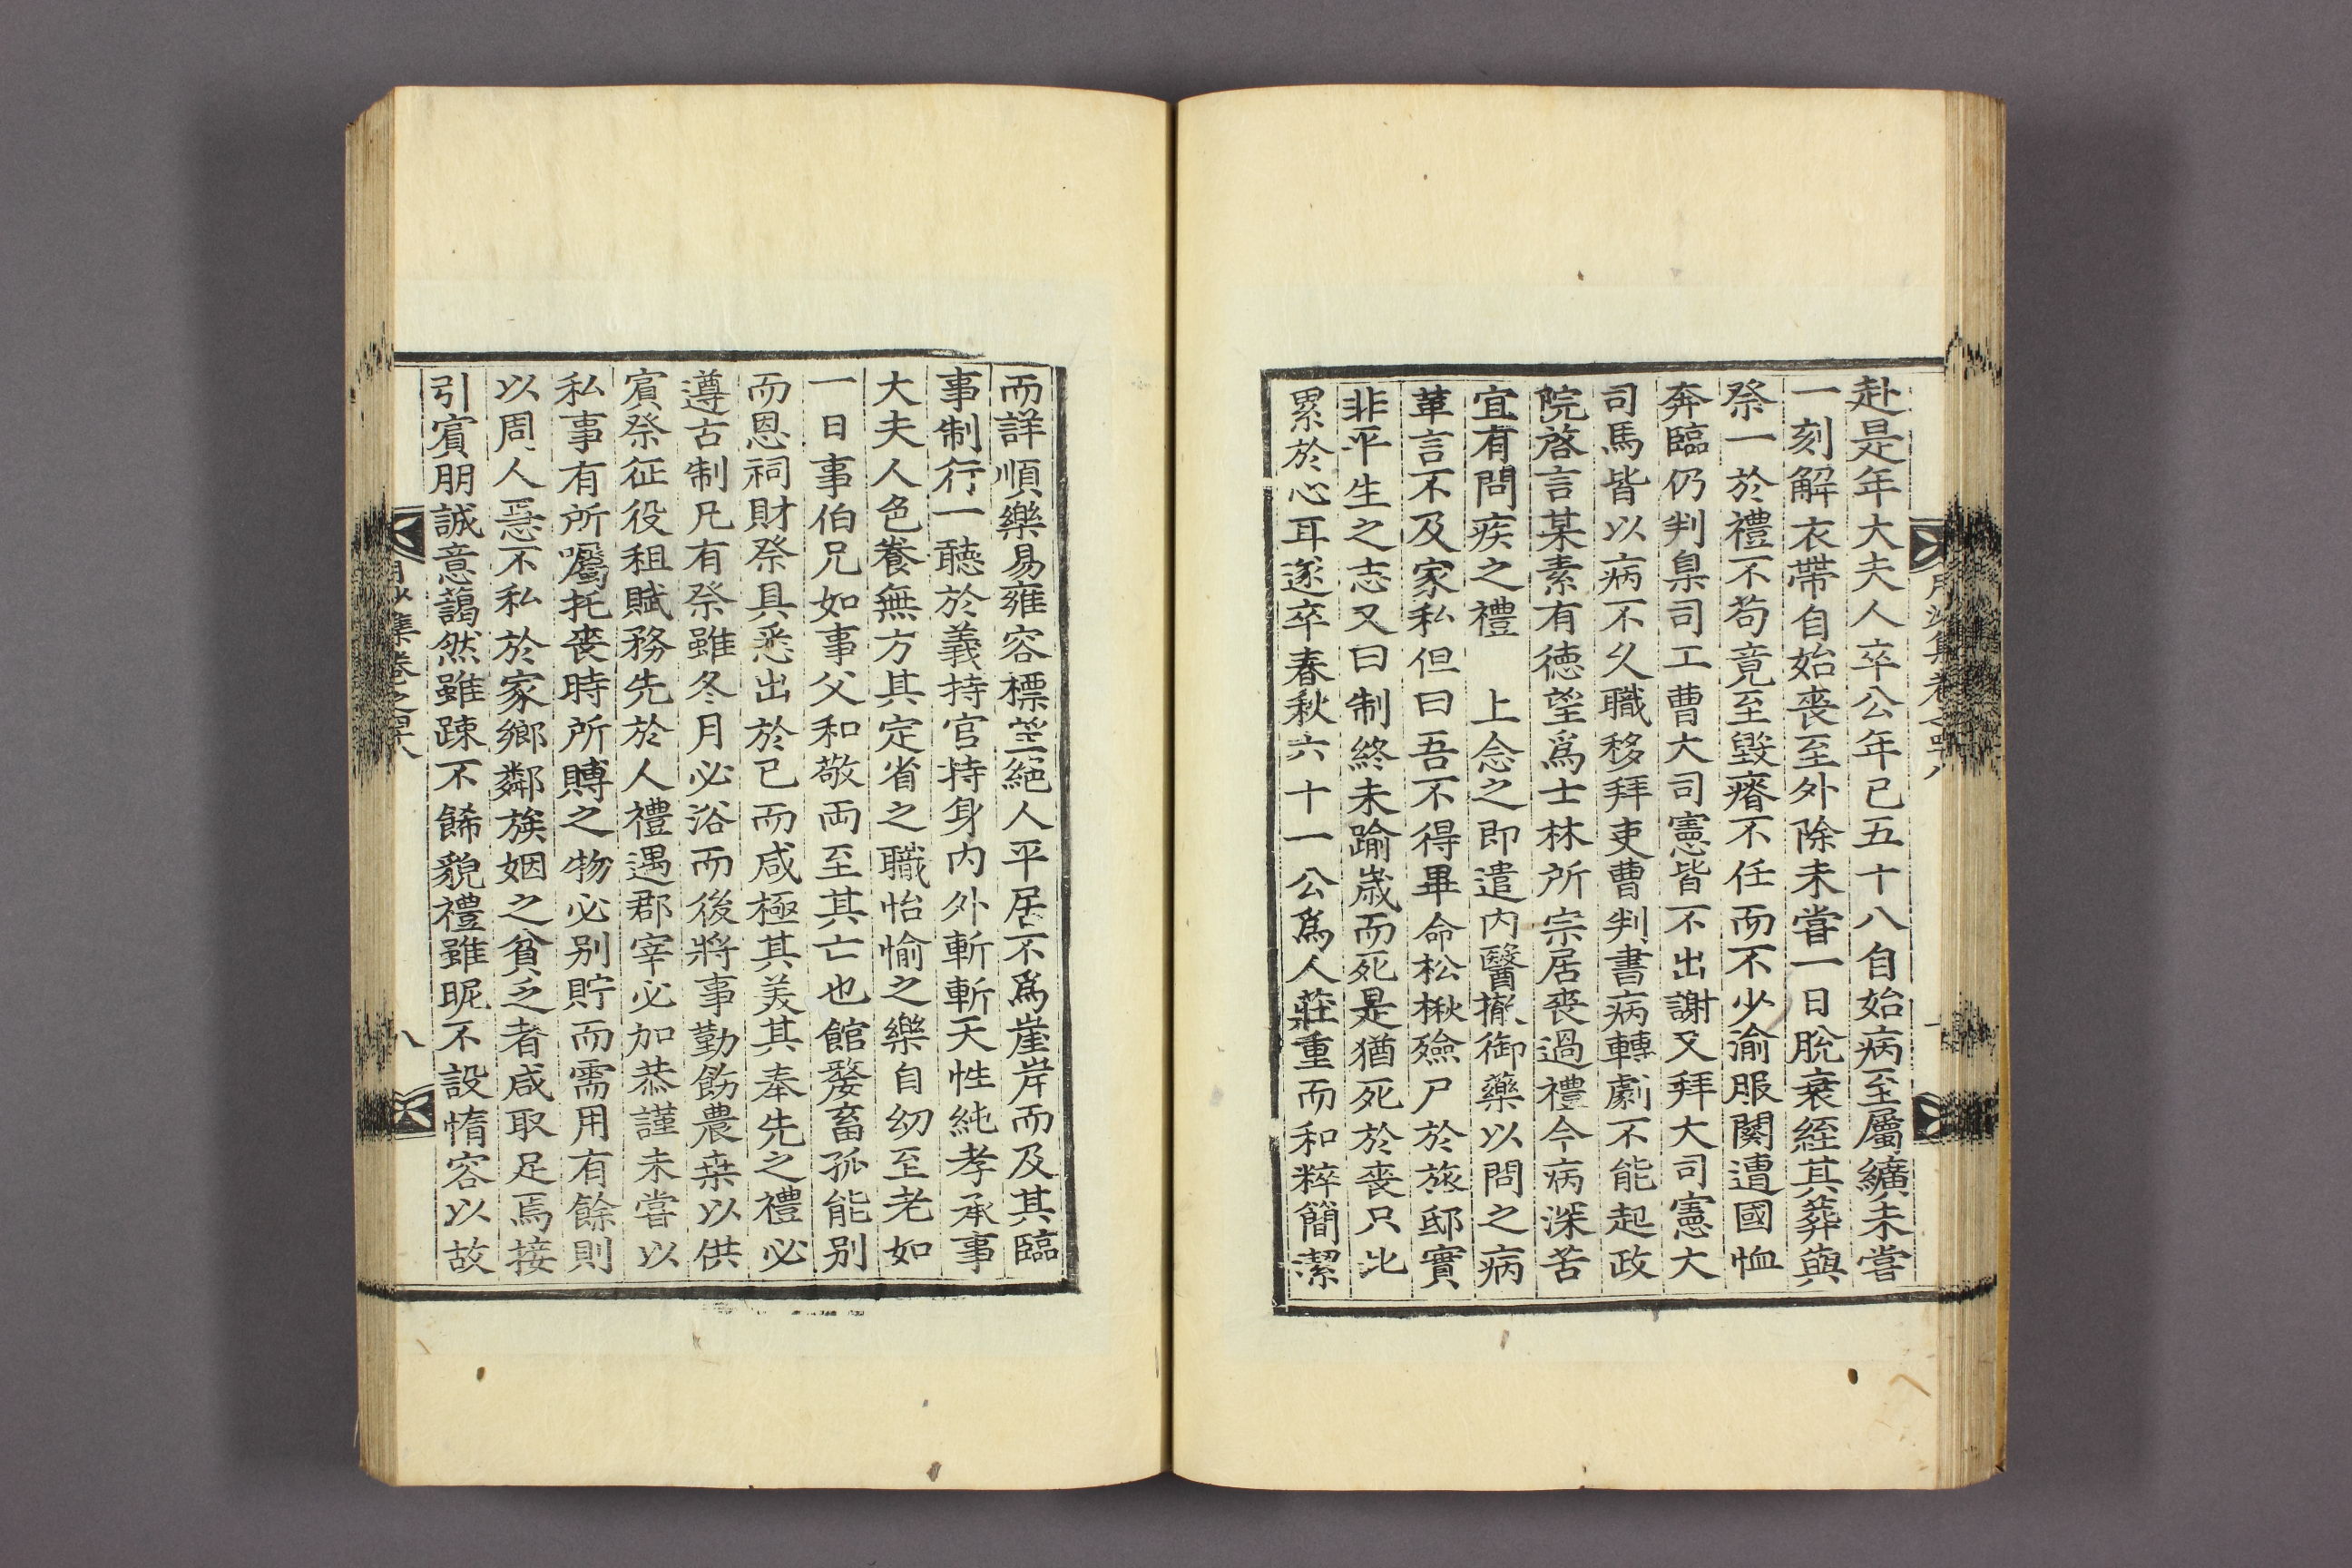 赴是年大夫人卒公年已五十八自始病至屬纊未嘗
一刻解衣帶自始喪至外除未嘗一日脫衰絰其葬與
祭一於禮不苟竟至毀瘠不任而不少渝服闋遭國恤
奔臨仍判臬司工曹大司憲皆不出謝又拜大司憲大
司馬皆以病不久職移拜吏曹判書病轉劇不能起政
院啓言某素有德望爲士林所宗居喪過禮今病深苦
宜有問疾之禮 上念之即遣内醫撤御藥以問之病
革言不及家私但曰吾不得畢命松楸殮尸於旅邸實
非平生之志又曰制終未踰歲而死是猶死於喪只此
累於心耳遂卒春秋六十一公爲人莊重而和粹簡潔
而詳順樂易雍容標竖絕人平居不爲崖岸而及其臨
事制行一聽於義持官持身内外斬斬天性純孝承事
大夫人色養無方其定省之職怡愉之樂自幼至老如
一日事伯兄如事父和敬両至其亡也館嫠畜孤能别
而恩祠財祭具悉出於已而咸極其美其奉先之禮必
遵古制凡有祭雖冬月必浴而後將事勤飭農桒以供
賓祭征役租賦務先於人禮遇郡宰必加恭謹未嘗以
私事有所囑托喪時所賻之物必别貯而需用有餘則
以周人急不私於家鄉鄰族姻之貧乏者咸取足焉接
引賓朋誠意藹然雖踈不餙貌禮雖昵不設惰容以故
集卷之四十八
八